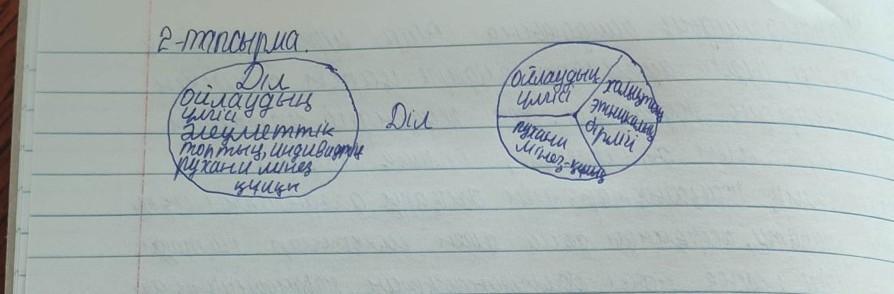 2-тапсырма.
Діл
ойлаудың
үлгісі
әлеуметтік
топтың, индивидтің
рухани мінез
құлқы
Діл
ойлаудың
үлгісі
халықтың
этникалық
бірлігі
рухани
мінез-құлық